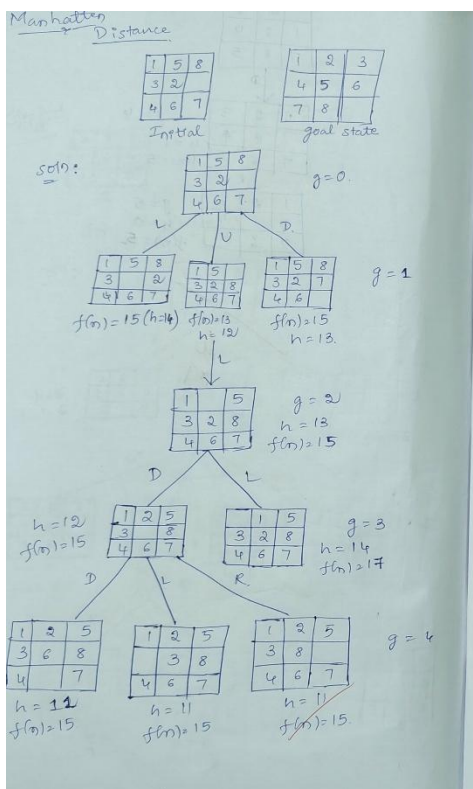 Manhatten
Distance
1 5 8
3 2
4 6 7
Initial
1 2 3
4 5 6
7 8
goal state
soln:
1 5 8
3 2
4 6 7
g=0
L U D.
1 5 8
3 2
4 6 7
f(n)=15(h=14)
1 5
3 2 8
4 6 7
f(n)=13
h=12
1 5 8
3 2 7
4 6
f(n)=15
h=13.
g=1
L
1 5
3 2 8
4 6 7
g=2
h=13
f(n)=15
D L
h=12
f(n)=15
1 2 5
3 8
4 6 7
1 5
3 2 8
4 6 7
g=3
h=14
f(n)=17
D L R.
1 2 5
3 6 8
4 7
h=11
f(n)=15
1 2 5
3 8
4 6 7
h=11
f(n)=15
1 2 5
3 8
4 6 7
h=11
f(n)=15.
g=4